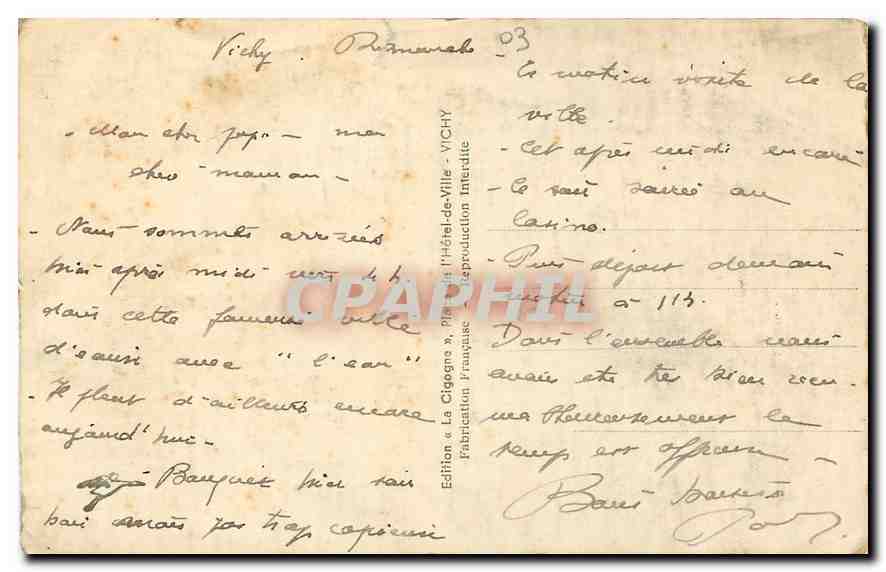 Vichy. Dimanche 03
- Mon cher papa - ma
chère maman -
- Nous sommes arrivés
hier après midi vers 4 h
dans cette fameuse ville
d'eaux avec "l'eau"
- Il pleut d'ailleurs encore
aujourd'hui -
Banquet hier soir
pas trop copieux
Edition « La Cigogne », Place de l'Hôtel-de-Ville - VICHY
Fabrication Française - Reproduction Interdite
- Ce matin visite de la
ville.
- Cet après midi encore
- Ce soir soirée au
Casino.
- Puis départ demain
matin à 11h.
Dans l'ensemble nous
avons été très bien reçu
malheureusement le
temps est affreux -
Bons baisers
CPAPHIL